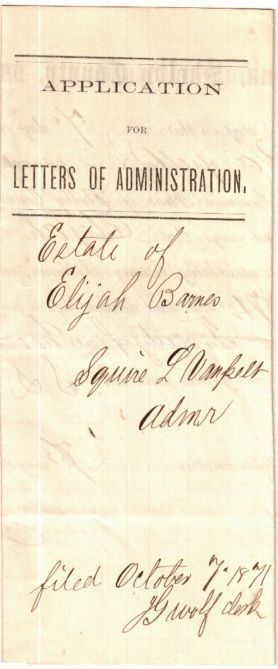 APPLICATION
FOR
LETTERS OF ADMINISTRATION.
Estate of
Elijah Barnes
Squire L Vanpelt
Admr
filed October 7. 1871
JG Wolf clerk